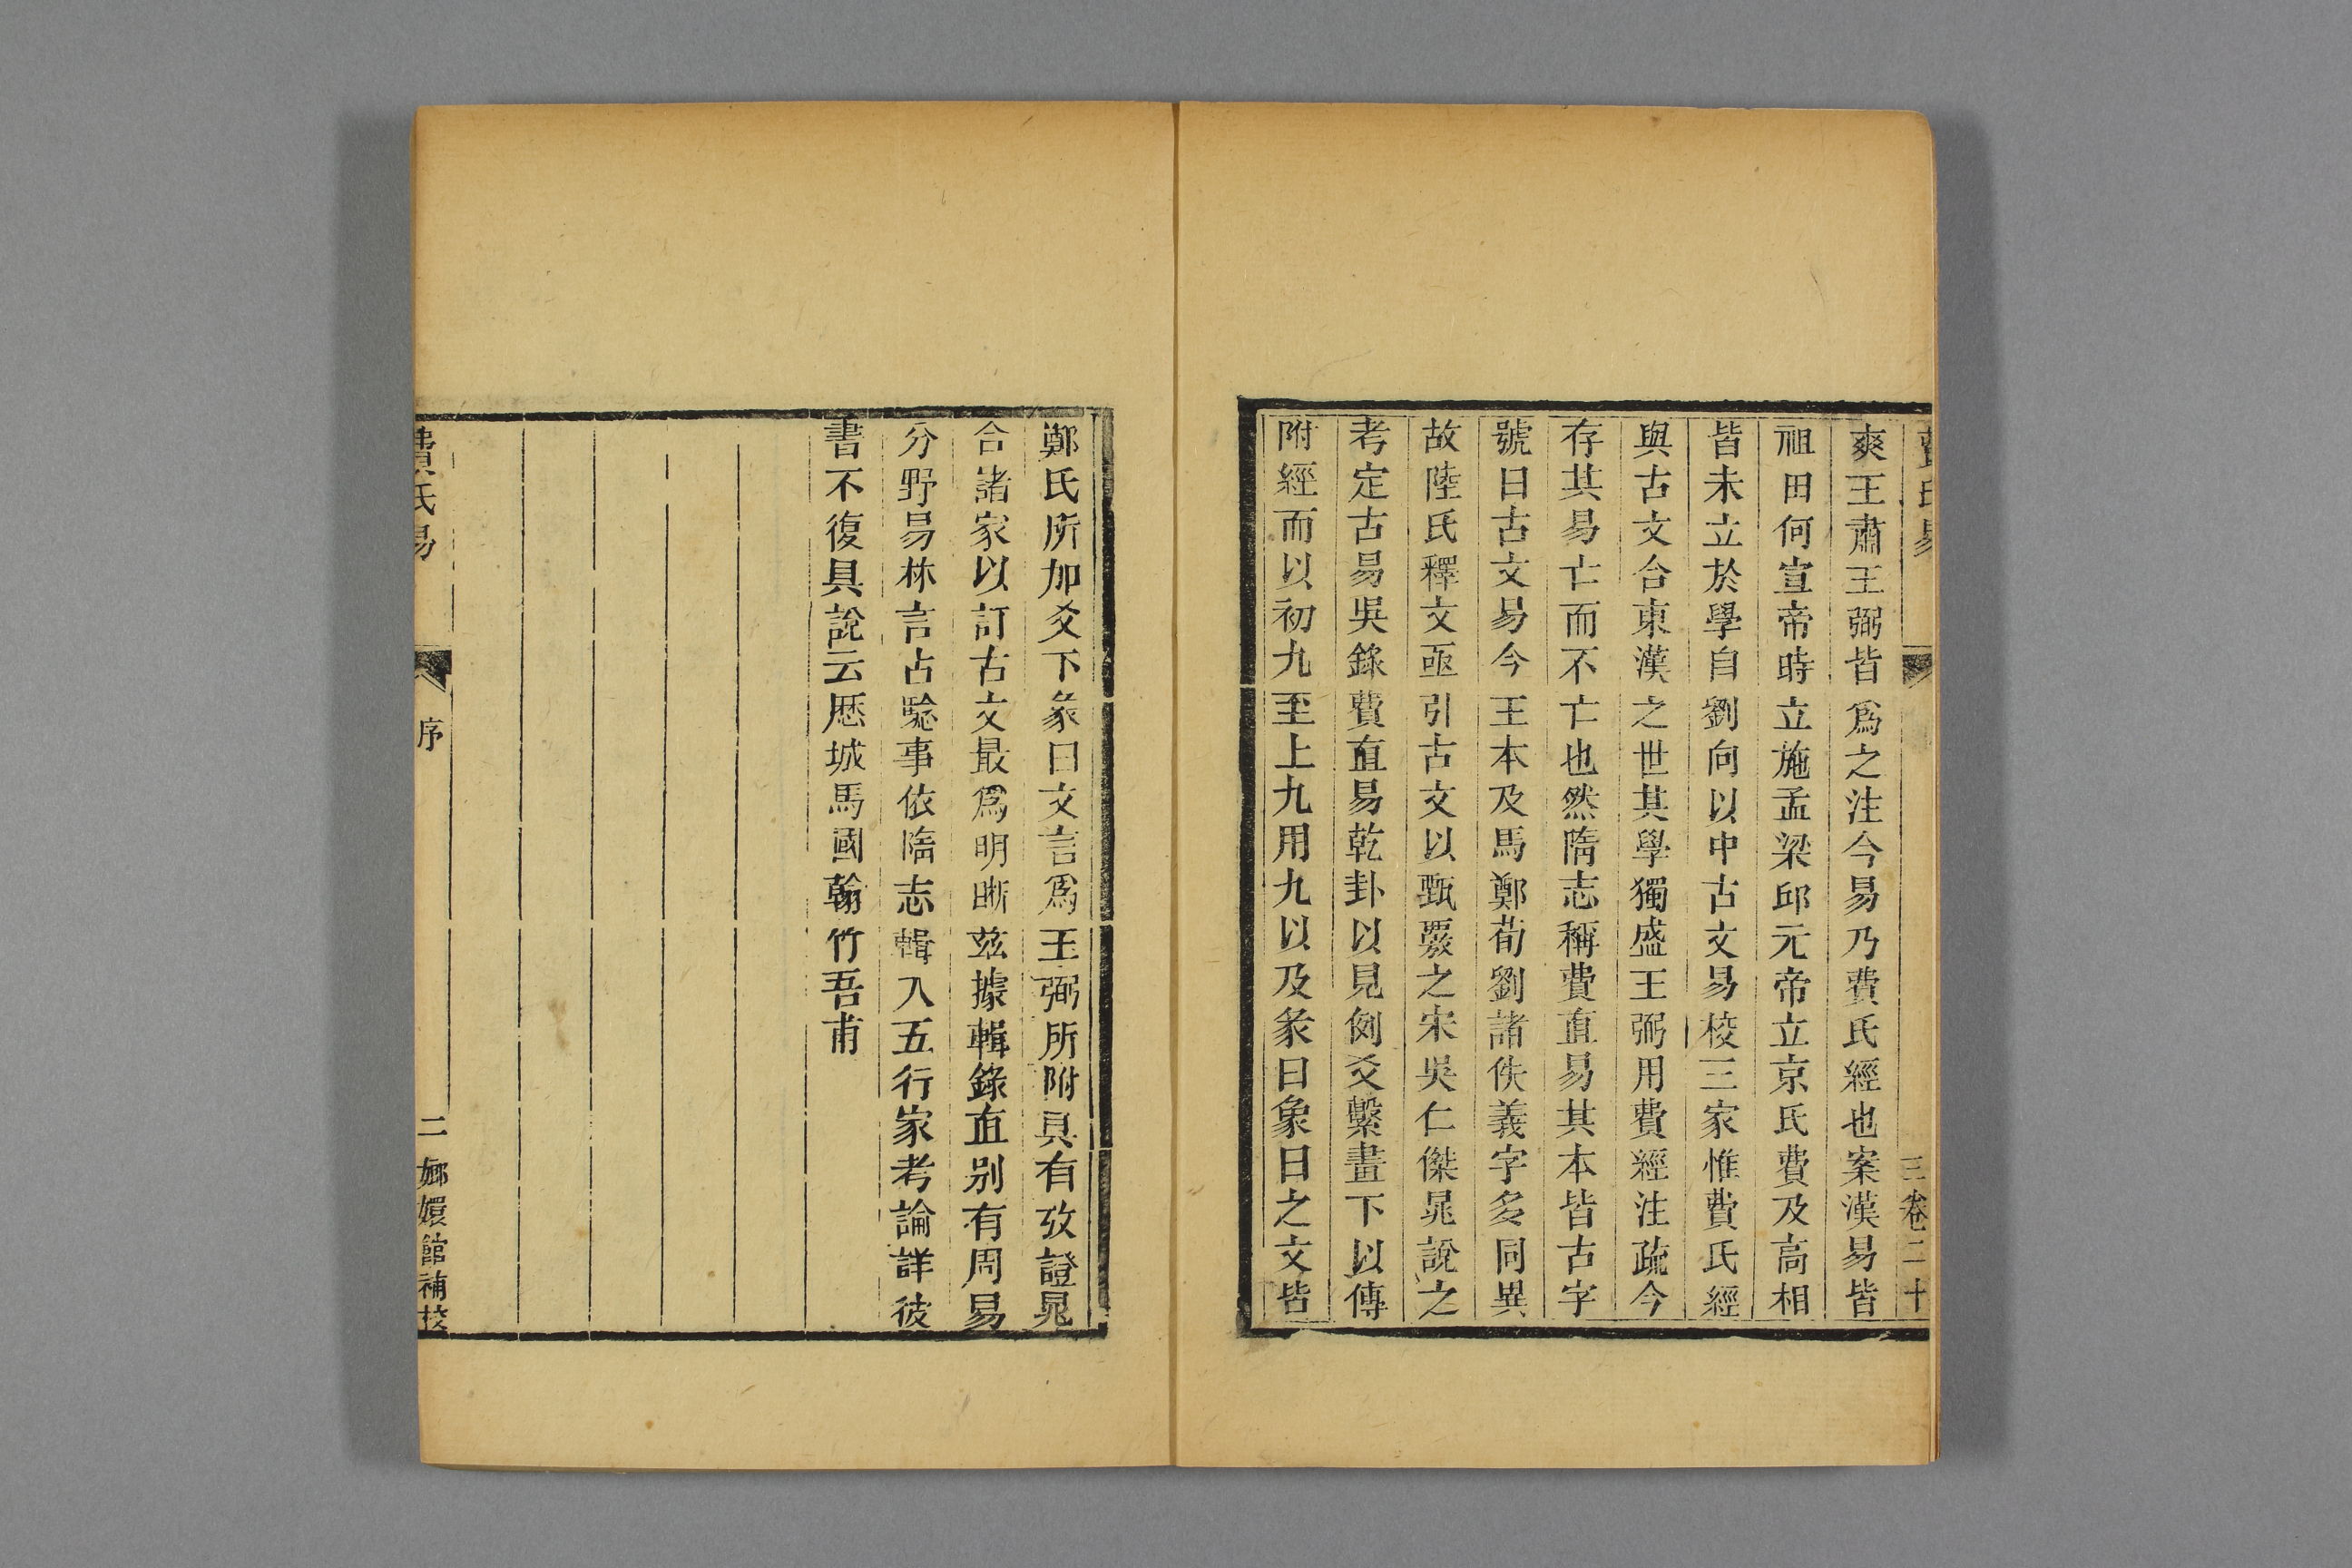 費氏易
三卷二十
爽王肅王弼皆爲之注今易乃費氏經也案漢易皆
祖田何宣帝時立施孟梁邱元帝立京氏費及高相
皆未立於學自劉向以中古文易校三家惟費氏經
與古文合東漢之世其學獨盛王弼用費經注疏今
存其易亡而不亡也然隋志稱費直易其本皆古字
號曰古文易今王本及馬鄭荀劉諸佚義字多同異
故陸氏釋文亟引古文以甄覈之宋吳仁傑晁說之
考定古易吳錄費直易乾卦以見例爻繫畫下以傳
附經而以初九至上九用九以及彖曰象曰之文皆
鄭氏所加爻下象曰文言爲王弼所附具有攷證晁
合諸家以訂古文最爲明晰茲據輯錄直别有周易
分野易林言占騐事依隋志輯入五行家考論詳彼
書不復具說云厯城馬國翰竹吾甫
費氏易
序
二
嫏嬛館補校